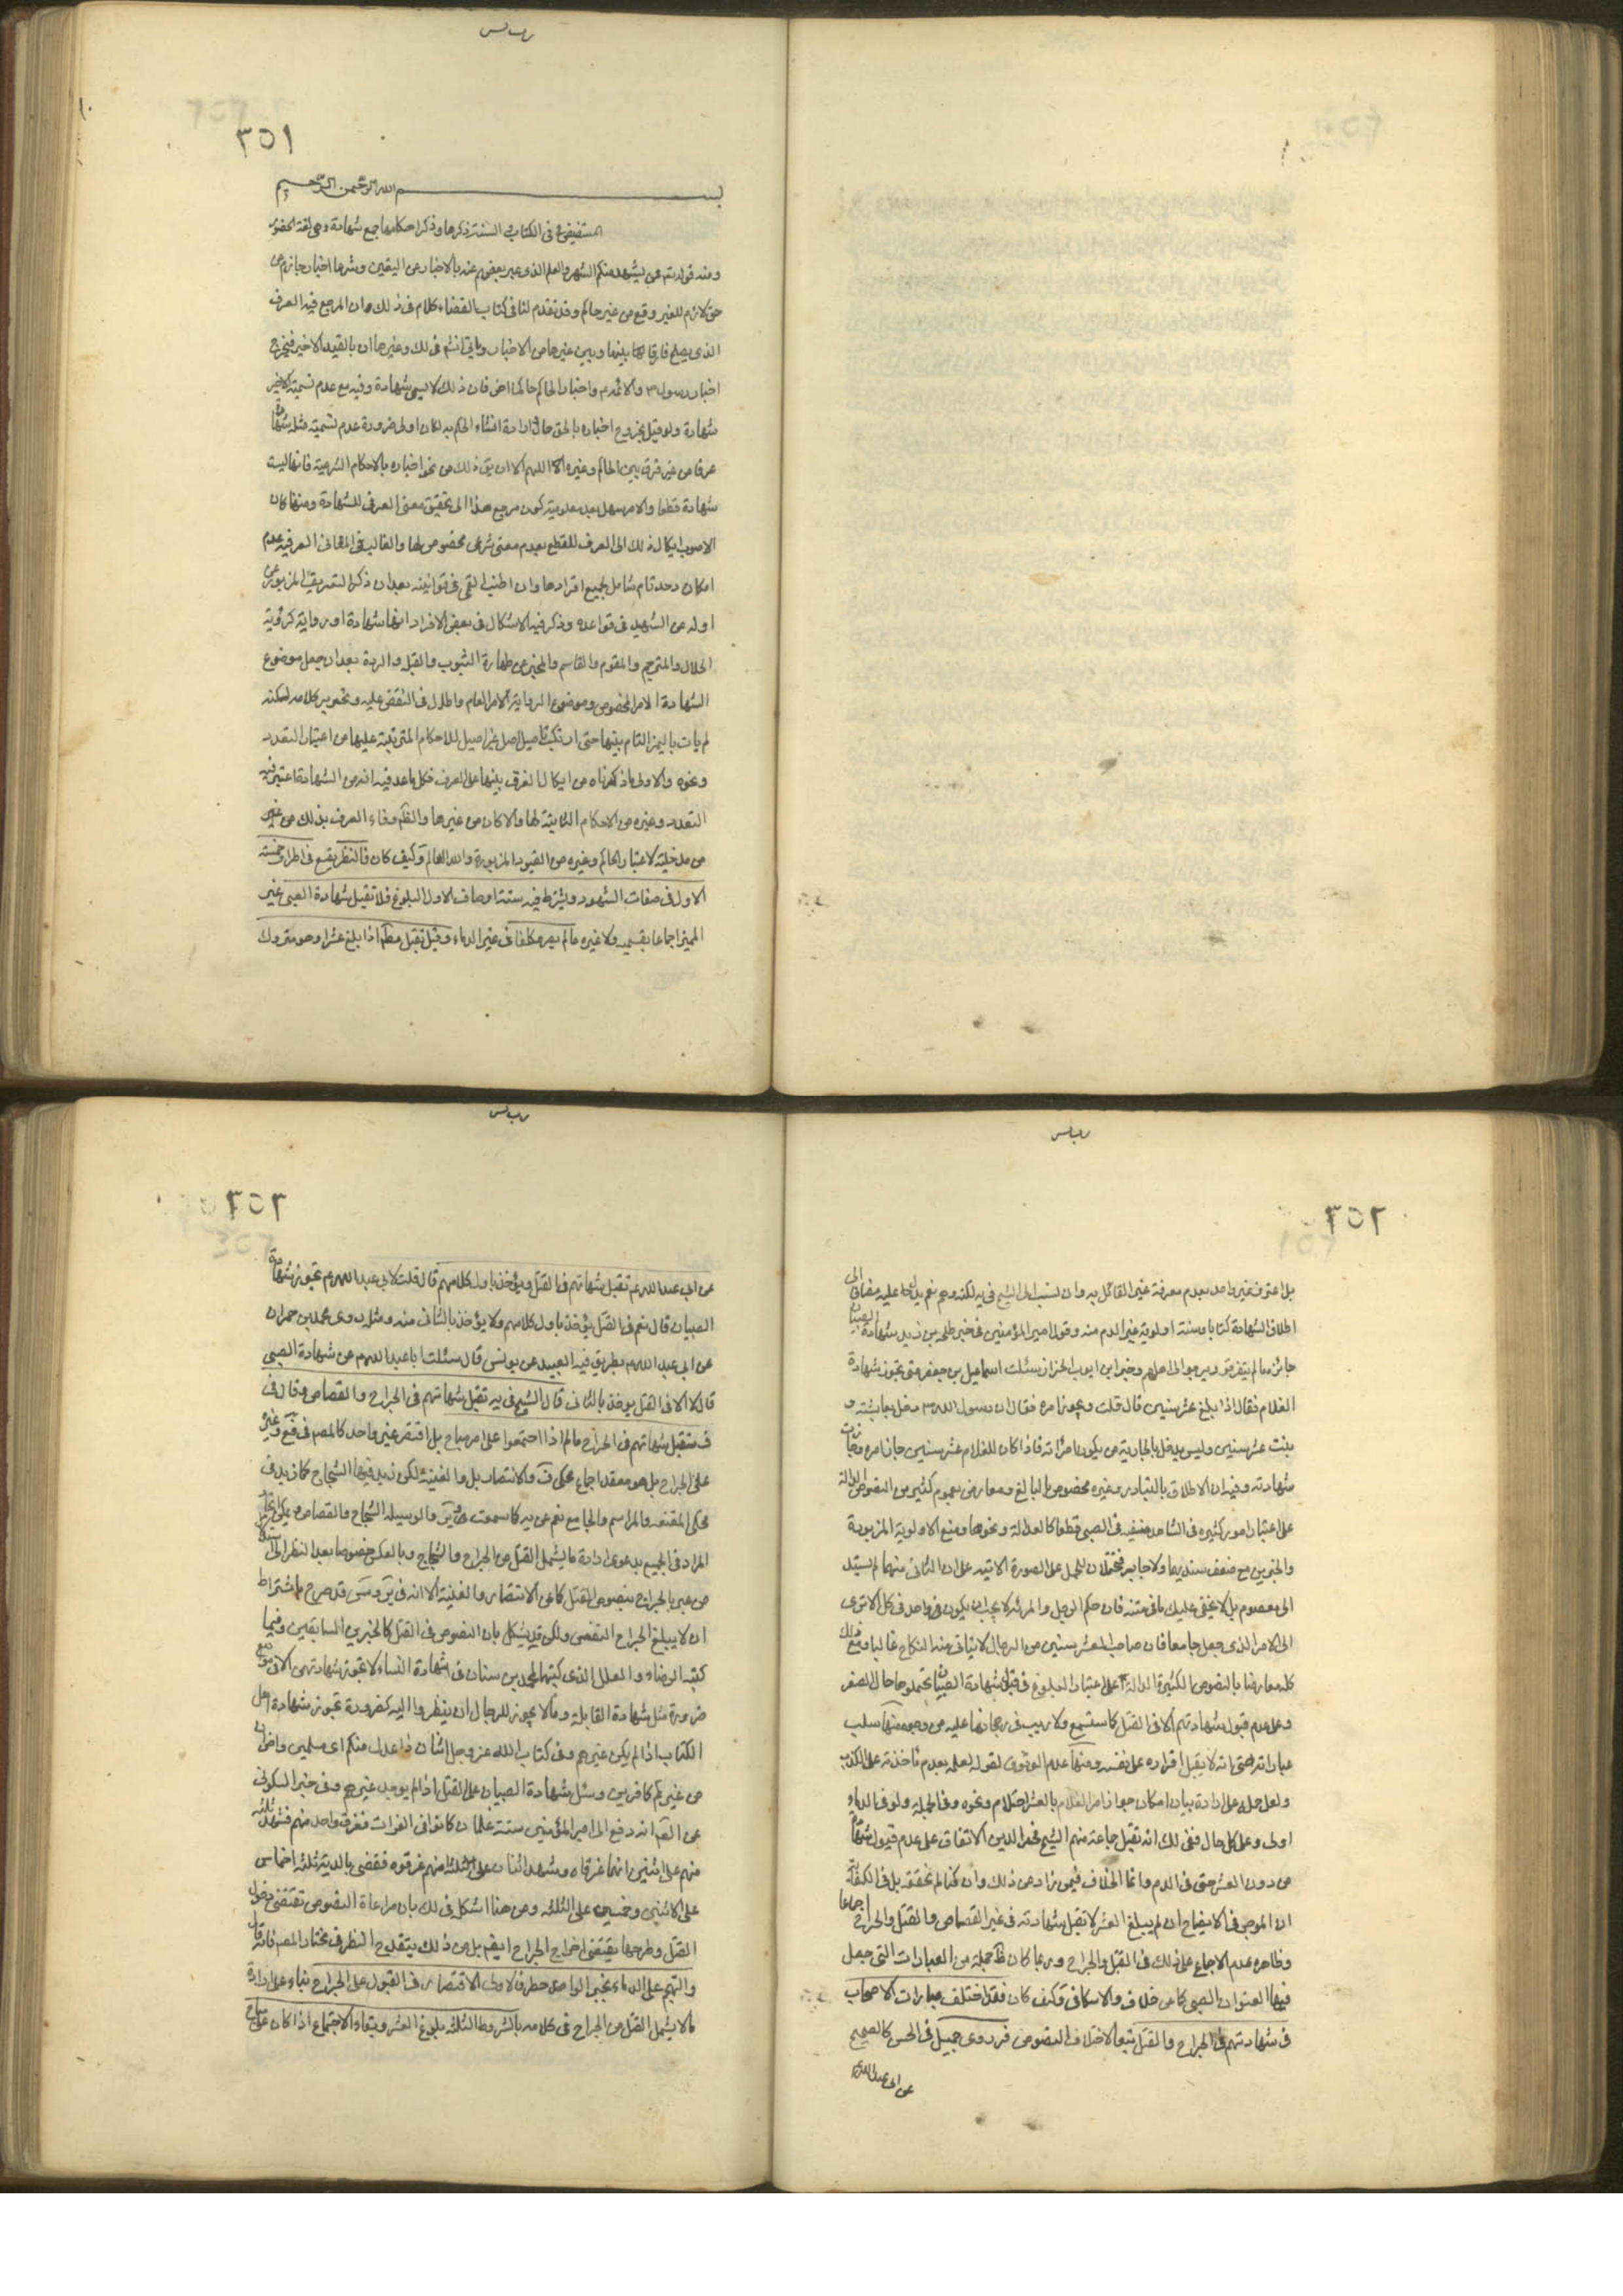 ١٥٣
بسم الله الرحمن الرحيم
المستفيض في الكتاب والسنة ذكرها وذكر احكامها جمع شهادة وهي لغة الحضور
ومنه قوله تعم فمن يشهد منكم الشهر والعلم الذي عبر بعضهم عنه بالاخبار عن اليقين وشرعا اخبار جازم عن
حق لازم للغير وقع من غير حاكم وقد تقدم لنا في كتاب القضاء كلام في ذلك وان المرجع فيه العرف
الذي يصلح فارقا بينها وبين غيرها من الاخبار ويأتي في ذلك وغيرها ان بالقيد الاخير فيخرج
اخبار رسول والائمة واخبار الحاكم حاكما اخر فان ذلك لا يسمى شهادة وفيه مع عدم تسمية الاخير
شهادة ولو قيل بخروج اخباره بالحق حال ارادة انشاء الحكم به لكان اولى ضرورة عدم تسمية مثله شهادة
عرفا من غير فرق بين الحاكم وغيره اللهم الا ان يق ذلك من نحو اخباره بالاحكام الشرعية فانها ليست
شهادة قطعا والامر سهل بعد معلومية كون مرجع هذا الى تحقيق معنى العرف للشهادة ومنها كان
الاصوب ايكال ذلك الى العرف للقطع بعدم معنى شرعي مخصوص لها والغالب في المعاني العرفية عدم
امكان حد تام شامل لجميع افرادها وان اطنب القمي في قوانينه بعد ان ذكر التعريف المزبور عن
اوله عن الشهيد في قواعده وذكر فيه الاشكال في بعض الافراد انها شهادة او رواية كرؤية
الهلال والمترجم والمقوم والقاسم والمخبر عن طهارة الثوب والقبلة والردة بعد ان جعل موضوع
الشهادة الامر المخصوص وموضوع الرواية الامر العام واطال في النقض عليه وتحوير كلامه لكنه
لم يأت بالميز التام بينها حتى ارتكب تأصيل اصل غير اصيل للاحكام المترتبة عليها من اعتبار التعدد
ونحوه والاولى ما ذكرناه من ايكال الفرق بينها على العرف فكل ما عد فيه انه من الشهادة اعتبر فيه
التعدد وغيره من الاحكام الثابتة لها والا كان من غيرها والظم وفاء العرف بذلك من غير
من مدخلية لاعتبار الحاكم وغيره من القيود المزبورة والله العالم وكيف كان فالنظر يقع في اطراف خمسة
الاول في صفات الشهود ويشترط فيه ستة اوصاف الاول البلوغ فلا تقبل شهادة الصبي غير
المميز اجماعا بقسميه ولا غيره مالم يصر مكلفا في غير الدماء وقيل تقبل مطلقا اذا بلغ عشرا وهو متروك
بل اعترف غير واحد بعدم معرفة غير القائل به وان نسب الى الشيخ في يه لكنه وهم نعم يدل عليه مضافا الى
اطلاق الشهادة كتابا وسنة اولوية غير الدم منه وقول امير المؤمنين في خبر طلحة بن زيد شهادة الصبيان
جائزة مالم يتفرقوا ويرجعوا الى اهلهم وخبر ابي ايوب الخزاز سئلت اسماعيل بن جعفر متى تجوز شهادة
الغلام فقال اذا بلغ عشر سنين قال قلت ويجوز امره فقال ان رسول الله دخل بعايشة و
بنت عشر سنين وليس يدخل بالجارية حتى يكون امرأة فاذا كان للغلام عشر سنين جاز امره وجازت
شهادته وفيه ان الاطلاق بالتبادر وغيره مخصوص بالبالغ ومعارض بعموم كثير من النصوص الدالة
على اعتبار امور كثيرة في الشاهد منفية في الصبي قطعا كالعدالة ونحوها ومنع الاولوية المزبورة
والخبرين مع ضعف سنديهما ولا جابر محتملان للحمل على الصورة الاتية على ان الثاني منهما لم يسند
الى معصوم بل لا يخفى عليك مافي متنه فان حكم الرجل والمرئة لا يجب ان يكون في واحد في كل الا ترى
الى الامر الذي جعل جامعا فان صاحب العشر سنين من الرجال لا يتاتى منه النكاح غالبا ومع ذلك
كله معارضا بالنصوص الكثيرة الدالة على اعتبار البلوغ في قبول شهادة الصبيان بتحملوها حال الصغر
وعلى عدم قبول شهادتهم الا في القتل كما ستسمع ولا ريب في رجحانها عليه من وجوه منها سلب
عباراته حتى انه لا يقبل اقراره على نفسه ومنها عدم الوثوق بقوله لعلمه بعدم مؤاخذته على الكذب
ولعل حله على ارادة بيان امكان جواز امر الغلام بالعشر احتلام ونحوه وفي الجملة ولو في الدماء
اولى وعلى كل حال ففي ذلك انه نقل جماعة منهم الشيخ فخر الدين الاتفاق على عدم قبول شهادة
من دون العشر حتى في الدم وانما الخلاف فيمن زاد عن ذلك وان كنا لم نحققه بل في الكفاية
ان الموجود في الايضاح ان لم يبلغ العشر لا تقبل شهادته في غير القصاص والقتل والجراح اجماعا
وظاهره عدم الاجماع على ذلك في القتل والجراح وربما كان ظ جملة من العبارات التي جعل
فيها العنوان الصبي كما عن خلاف والاسكافي وكيف كان فقد اختلف عبارات الاصحاب
في شهادتهم في الجراح والقتل تبعا لاختلاف النصوص فروى جميل في الحسن كالصحيح
عن ابي عبدالله
عن ابي عبد الله ع تقبل شهادتهم في القتل ويؤخذ باول كلامهم قال قلت لابي عبد الله ع تجوز شهادة
الصبيان قال نعم في القتل يؤخذ باول كلامهم ولا يؤخذ بالثاني منه ومثله روى محمد بن حمران
عن ابي عبد الله بطريق فيه العبيد عن يونس قال سئلت ابا عبد الله ع عن شهادة الصبي
قال لا الا في القتل يؤخذ بالثاني قال الشيخ في يه تقبل شهادتهم في الجراح والقصاص وقال في
ف تقبل شهادتهم في الجراح مالم اذا اجتمعوا على امر مباح بل اقتصر غير واحد كالمصم في فع وغيره
على الجراح بل هو معقد اجماع محكي ف والانتصار بل والغنية لكن زيد فيها الشجاج كما زيد في
محكي المقنعة والمراسم والجامع نعم عن يه كما سمعت ور والوسيلة الشجاج والقصاص ويمكن
المراد في الجميع بدعوى ارادة ما يشمل القتل من الجراح والشجاج وبالعكس خصوصا بعد النظر الى استدلال
من عبر بالجراح بنصوص القتل كما عن الانتصار والغنية الا انه في س قد صرح باشتراط
ان لا يبلغ الجراح النفس ولكن قد يشكل بان النصوص في القتل كالخبرين السابقين وفيما
كتبه الرضاء والعلل الذي كتبها لمحمد بن سنان في شهادة النساء لا تجوز شهادتهن الا في موضع
ضرورة مثل شهادة القابلة وما لا يجوز للرجال ان ينظروا اليه كضرورة تجوز شهادة اهل
الكتاب اذا لم يكن غيرهم وفي كتاب الله عز وجل اثنان ذوا عدل منكم اي مسلمين واخران
من غيركم كافرين ومثل شهادة الصبيان على القتل اذا لم يوجد غيرهم وفي خبر السكوني
عن الصم انه دفع الى امير المؤمنين ستة غلمان كانوا في الفرات فغرق واحد منهم فشهد ثلثة
منهم على اثنين انهما غرقاه وشهد اثنان على الثلثة انهم غرقوه فقضى بالدية ثلثة اخماس
على الاثنين وخمسين على الثلثة ومن هنا اشكل في ذلك بان مراعاة النصوص تقتضي دخول
القتل وطرحها يقتضي اخراج الجراح ايضم بل من ذلك يتقدح النظر في مختار المصم فانه قال
والتهجم على الدماء بخبر الواحد خطر فالاولى الاقتصار في القبول على الجراح بناء على ارادة
ما لا يشمل القتل من الجراح في كلامه بالشروط الثلثة بلوغ العشر وبقاء الاجتماع اذا كان على مباح